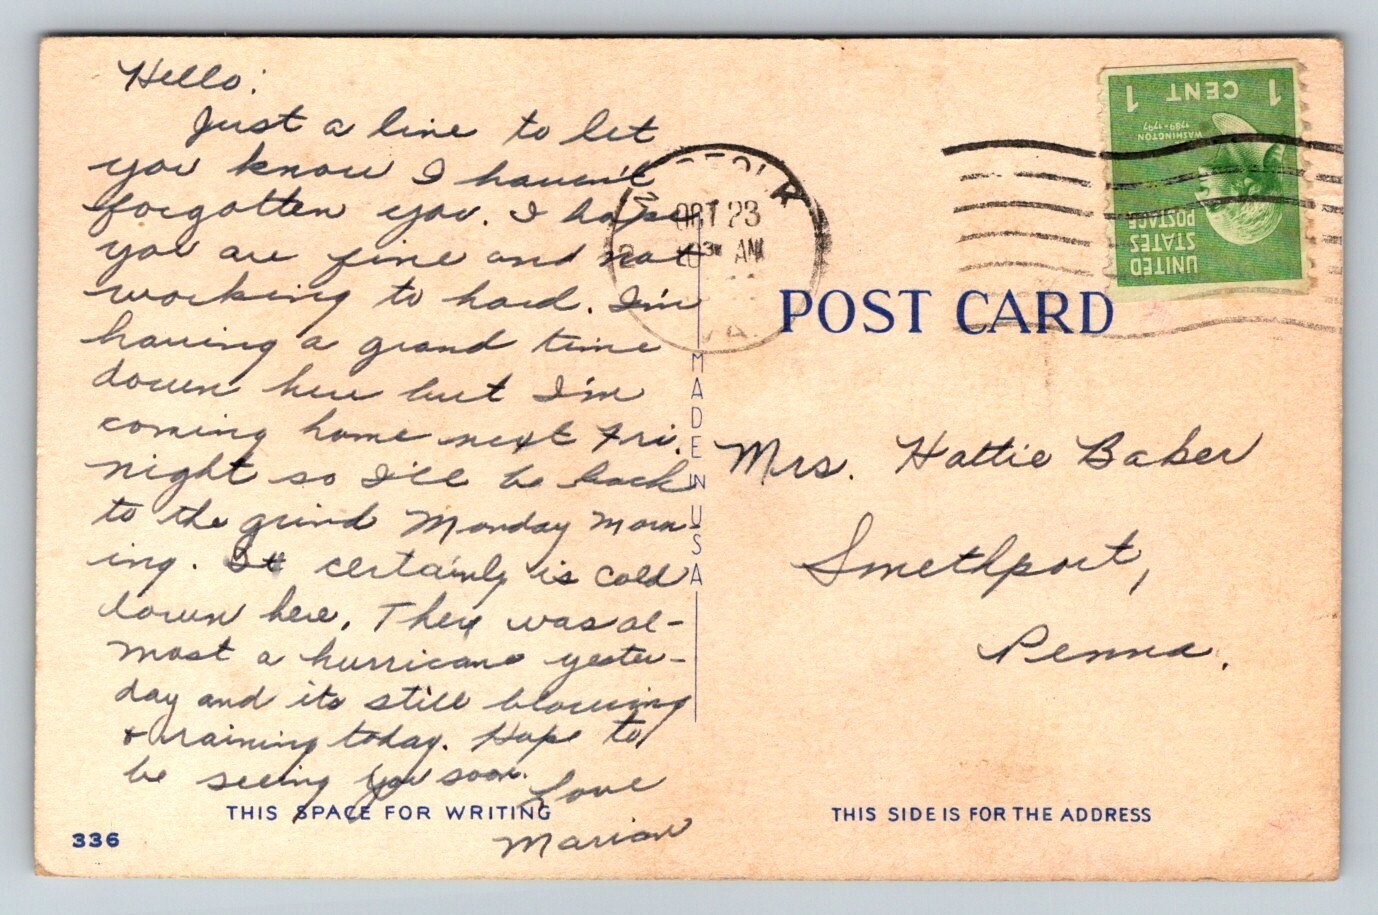 Hello:
Just a line to let
you know I haven't
forgotten you. I hope
you are fine and not
working to hard. I'm
having a grand time
down here but I'm
coming home next Fri.
night so I'll be back
to the grind Monday Morn-
ing. It certainly is cold
down here. There was al-
most a hurricane yester-
day and its still blowing
& raining today. Hope to
be seeing you soon.
Love
Marion
THIS SPACE FOR WRITING
336
MADE IN USA
OCT 23
AM
VA.
1 CENT 1
WASHINGTON
1789-1797
UNITED
STATES
POSTAGE
POST CARD
Mrs. Hattie Baker
Smethport,
Penna.
THIS SIDE IS FOR THE ADDRESS